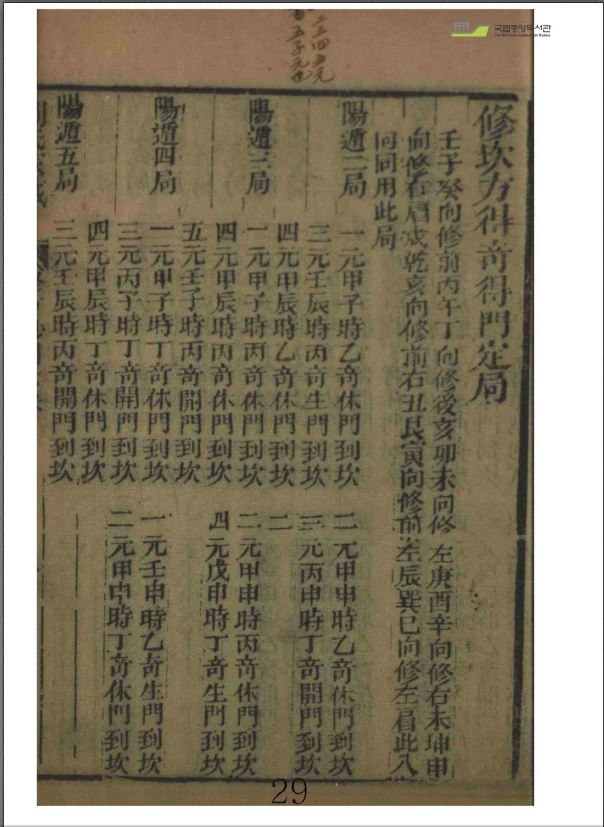 국립중앙도서관
THE NATIONAL LIBRARY OF KOREA
修坎方得奇得門定局
壬子癸向修前丙午丁向修後亥卯未向修左庚酉辛向修右未坤申
向修右眉戌乾亥向修前右丑艮寅向修前左辰巽巳向修左眉此八
向同用此局
陽遁二局
一元甲子時乙奇休門到坎
二元甲申時乙奇休門到坎
三元壬辰時丙奇生門到坎
三元丙申時丁奇開門到坎
四元甲辰時乙奇休門到坎
二
陽遁三局
一元甲子時丙奇休門到坎
二元甲申時丙奇休門到坎
四元甲辰時丙奇休門到坎
四元戊申時丁奇生門到坎
五元壬子時丙奇開門到坎
陽遁四局
一元甲子時丁奇休門到坎
一元壬申時乙奇生門到坎
三元丙子時丁奇開門到坎
二元甲申時丁奇休門到坎
四元甲辰時丁奇休門到坎
陽遁五局
三元壬辰時丙奇開門到坎
29